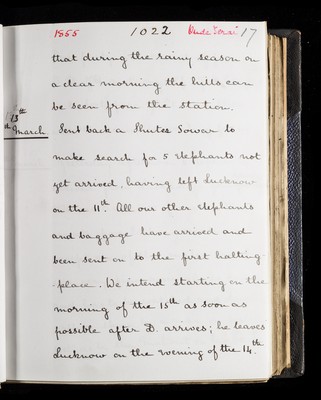 1855 1022 Oude Terai 17
that during the rainy season on
a clear morning the hills can
be seen from the station.
13th
March
Sent back a Shuter Sowar to
make search for 5 elephants not
yet arrived, having left Lucknow
on the 11th. All our other elephants
and baggage have arrived and
been sent on to the first halting
-place. We intend starting on the
morning of the 15th as soon as
possible after D. arrives; he leaves
Lucknow on the evening of the 14th.